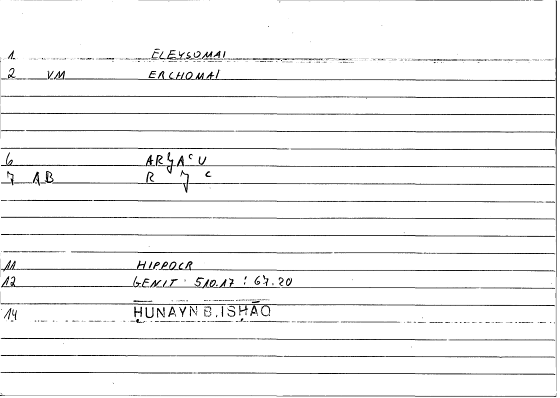 1 ELEYSOMAI
2 VM ERCHOMAI
6
7 AB R
11 HIPPOCR
12 GENIT 510.17 : 67.20
14 ḤUNAYN B. ISḤĀQ